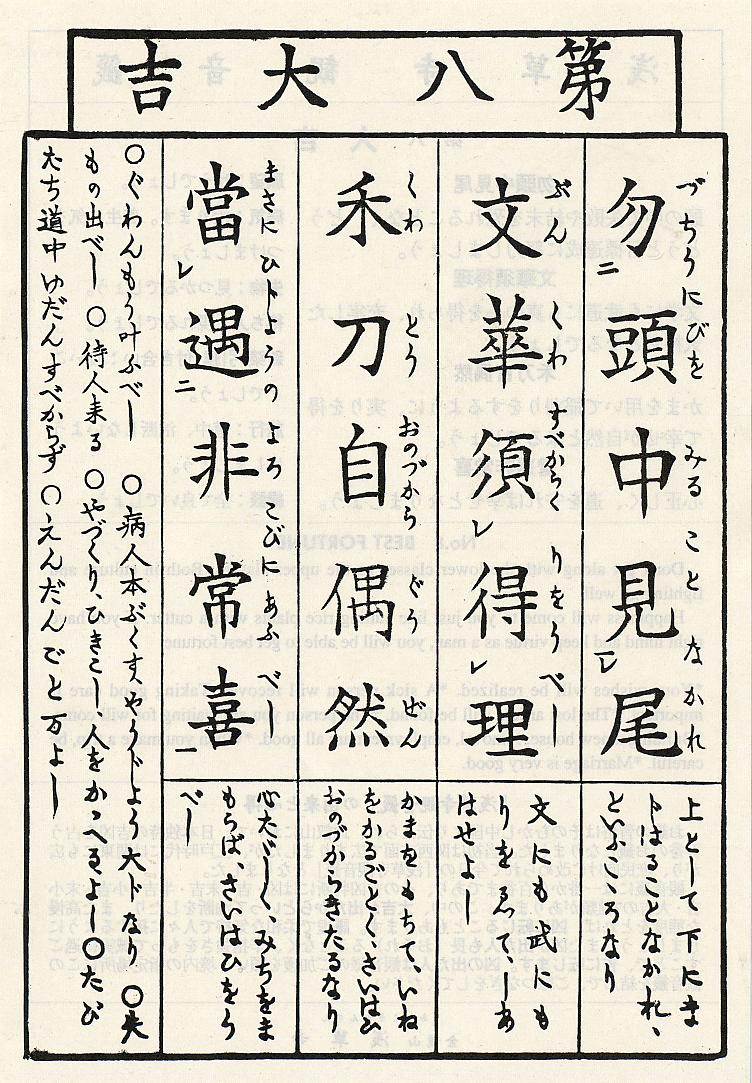 第八大吉
づちうにびを みる こと なかれ
勿二頭中見レ尾
上として下にま
じさることなかれ、
といふこゝろなり
ぶん くわ すべからく りをうべし
文華須レ得レ理
文にも武にも
りをゑ、しあ
はせよし
くわ とう おのづから ぐう ぜん
禾刀自偶然
かまをもちて、いね
をかるごとく、さいはひ
おのづからきたるなり
まさに ひじょうの よろこびに あふ べし
當レ遇二非常喜一
心たゞしく、みちをま
もらば、さいはひをう
べし
〇ぐわんもう叶ふべし 〇病人本ぶくす、やうじょう大じなり 〇失
もの出べし 〇待人来る 〇やづくり、ひきこし、人をかゝへるよし 〇たび
たち道中ゆだんすべからず 〇えんだんごと万よし